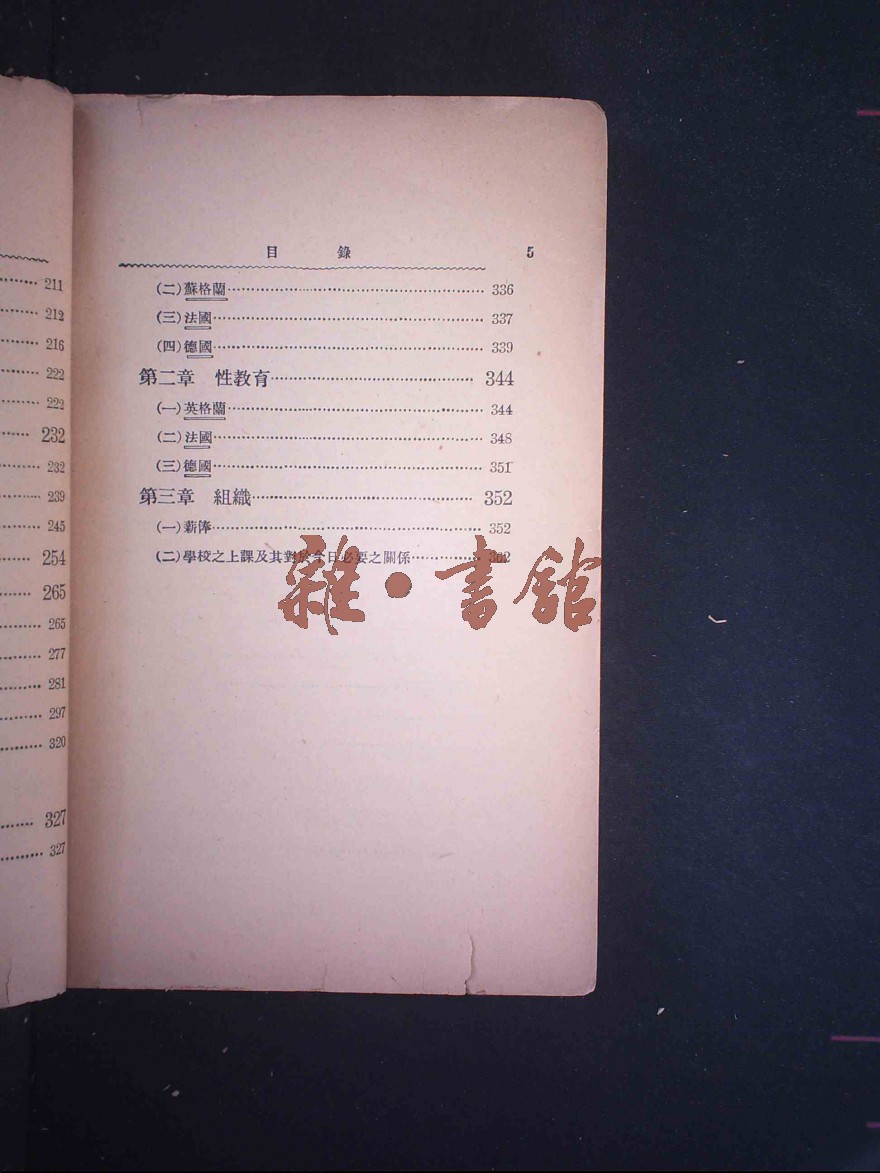 211
212
216
222
222
232
232
239
245
254
265
265
277
281
297
320
327
327
目 錄 5
(二)蘇格蘭 336
(三)法國 337
(四)德國 339
第二章 性教育 344
(一)英格蘭 344
(二)法國 348
(三)德國 351
第三章 組織 352
(一)薪俸 352
(二)學校之上課及其對於今日必要之關係 362
雜·書館